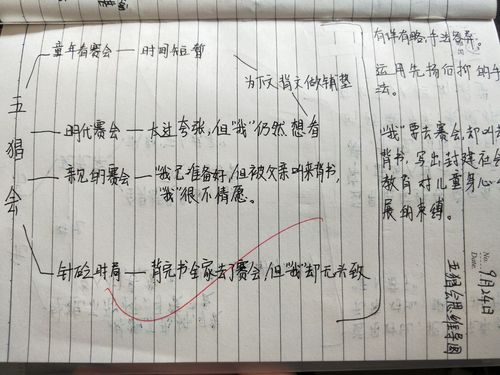 五猖会
童年看赛会——时间短暂
为下文背文做铺垫
明代赛会——太过夸张,但“我”仍然想看
亲见的赛会——“我”已准备好,但被父亲叫来背书,
“我”很不情愿。
背完书全家去了赛会,但“我”却无兴致
有详有略,手法
运用先扬后抑的手
法。
“我”要去赛会,却叫我
背书,写出封建社会
教育对儿童身心发
展的束缚。
No.
Date
9月24日
五猖会思维导图